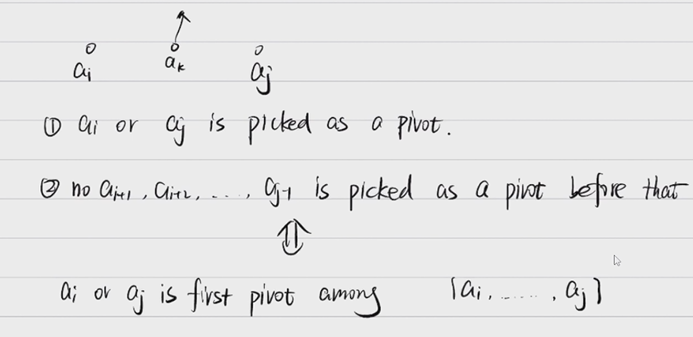 ai ak aj
① ai or aj is picked as a pivot.
② no ai+1, ai+2, ...., aj-1 is picked as a pivot before that
⇕
ai or aj is first pivot among {ai, ......, aj}